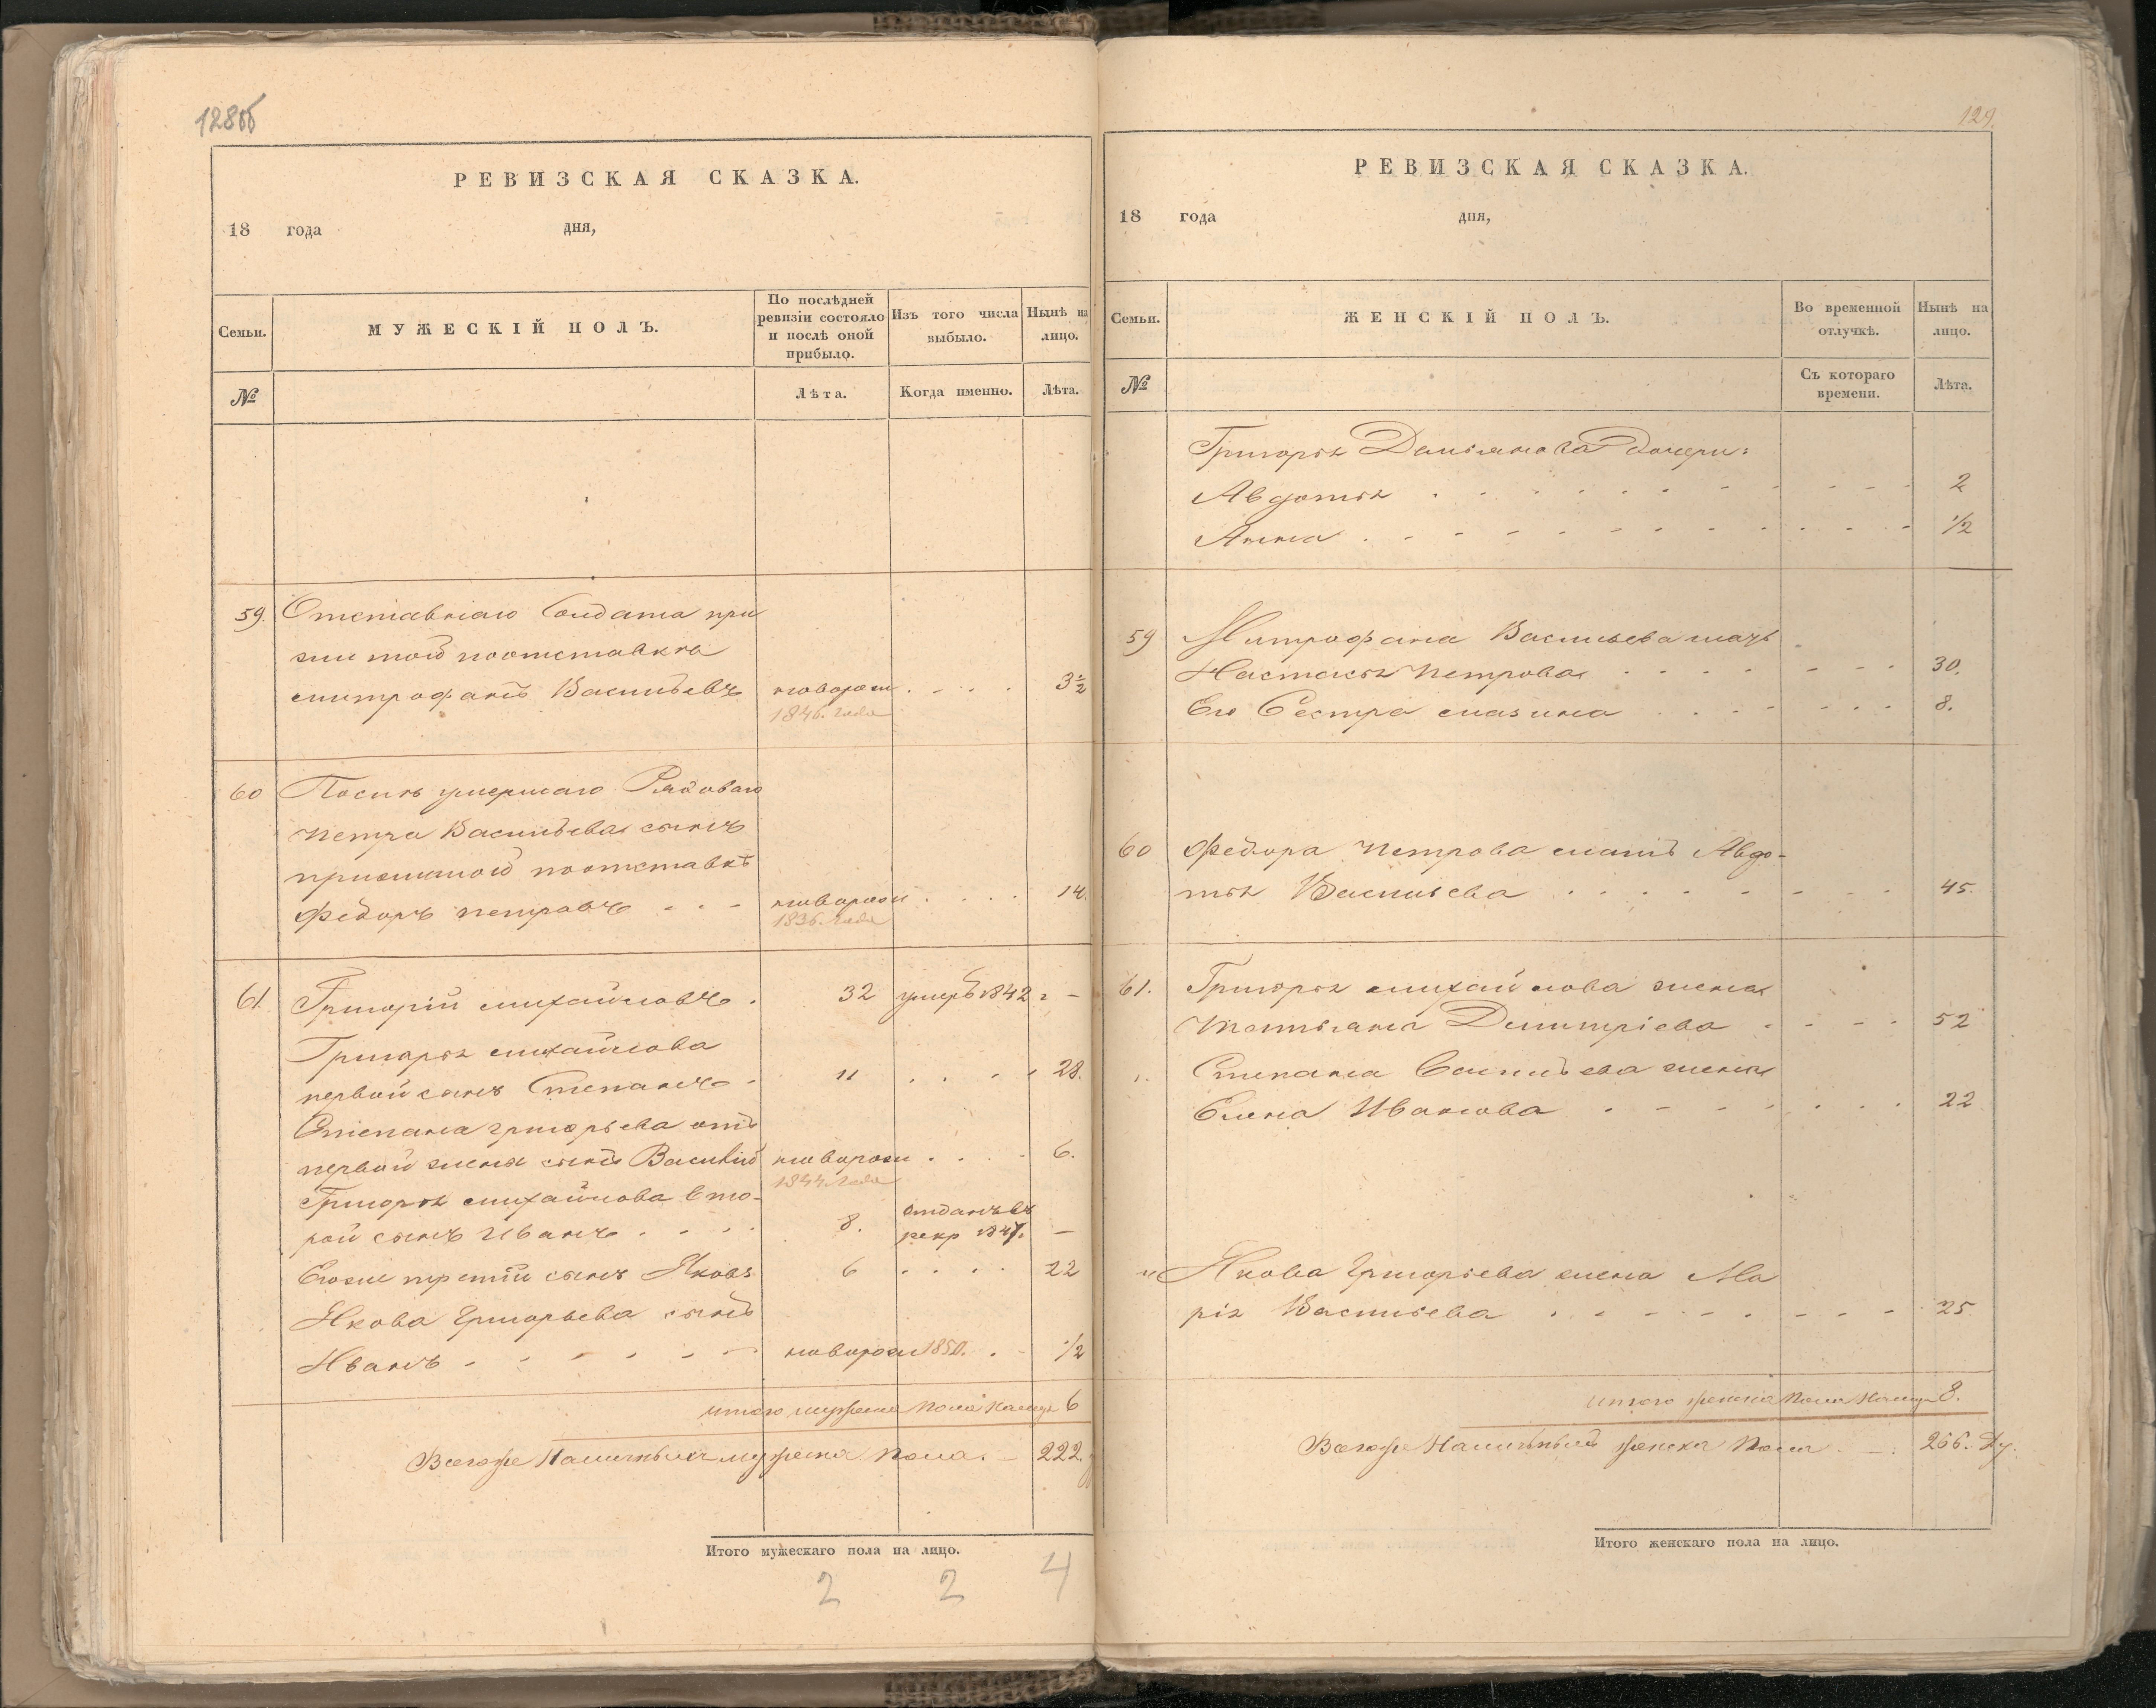 128об
РЕВИЗСКАЯ СКАЗКА.
18 года дня,
Семьи.
МУЖЕСКІЙ ПОЛЪ.
По послѣдней
ревизіи состояло
и послѣ оной
прибыло.
Изъ того числа
выбыло.
Нынѣ на
лицо.
№
Лѣта.
Когда именно.
Лѣта.
59. Отставнаго Солдата при
житой поотставкѣ
митрофанъ Васильевъ новорож 3½
1846. года
60 Послѣ умершаго Рядоваго
петра Васильева сынъ
прижитой поотставкѣ
Федоръ петровъ новорож 14.
1836. года
61. Григорій михайловъ 32 умеръ 1842 г –
Григорья михайлова
первой сынъ Степанъ 11 28.
Степана григорьева отъ
первой жены сынъ Василій новорож 6.
1844. года
Григорья михайлова вто-
рой сынъ Иванъ 8. отданъ въ
рекр 1847. –
Егоже третій сынъ Яковъ 6 22
Якова Григорьева сынъ
Иванъ новорож 1850. ½
итого мужеска пола налицо 6
Всегоже Наличныхъ мужеска пола. 222.
Итого мужескаго пола на лицо.
2 2 4
129.
РЕВИЗСКАЯ СКАЗКА.
18 года дня,
Семьи.
ЖЕНСКІЙ ПОЛЪ.
Во временной
отлучкѣ.
Нынѣ на
лицо.
№
Съ котораго
времени.
Лѣта.
Григорья Демьянова Дочери:
Авдотья 2
Анна ½
59 Митрофана Васильева мать
Настасья петрова 30.
Его Сестра мазина 8.
60 Федора Петрова мать Авдо-
тья Васильева 45.
61. Григорья михайлова жена
Татьяна Димитріева 52
Степана Васильева жена
Елена Иванова 22
" Якова Григорьева жена Ма
рія Васильева 25
итого женска пола налицо 8.
Всегоже Наличныхъ женска пола 266. Ду.
Итого женскаго пола на лицо.